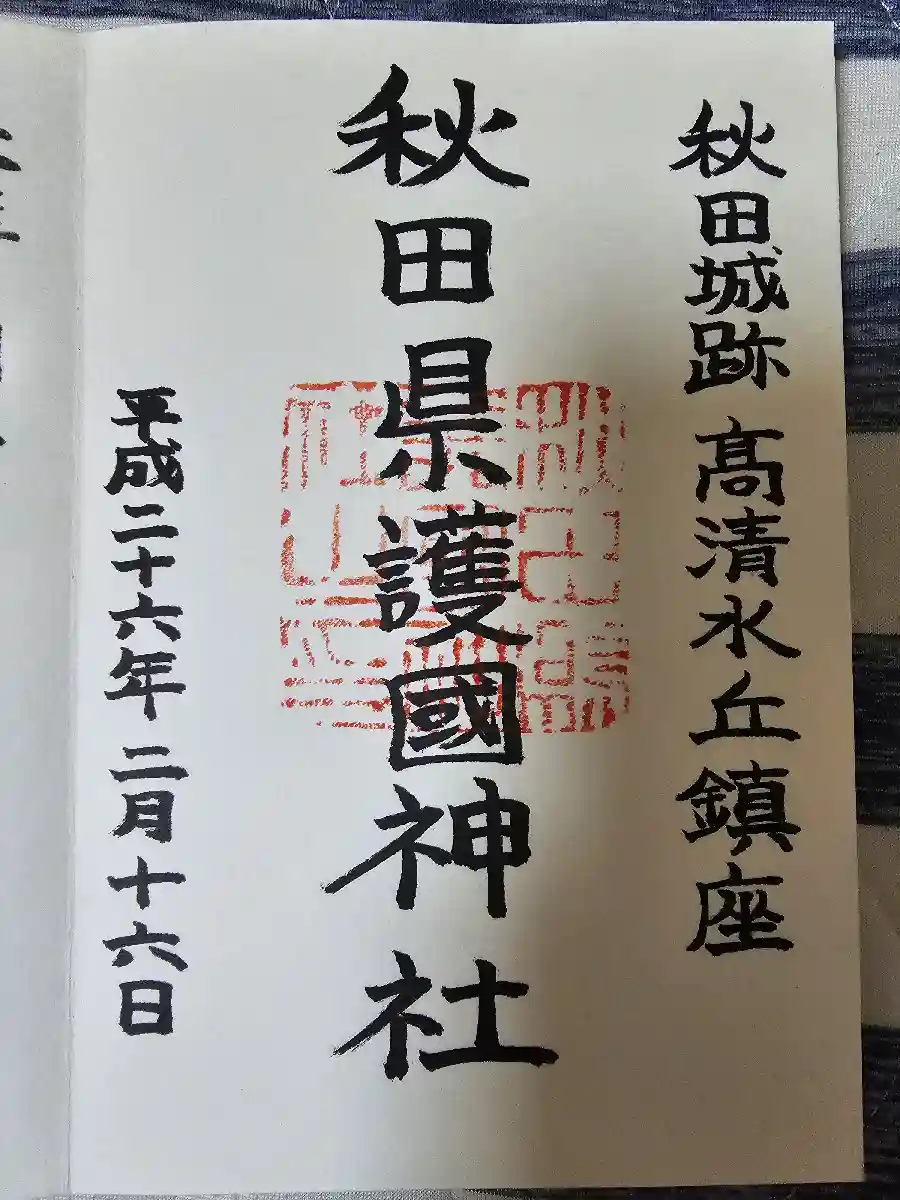 秋田城跡 髙清水丘鎮座
秋田県護國神社
平成二十六年二月十六日